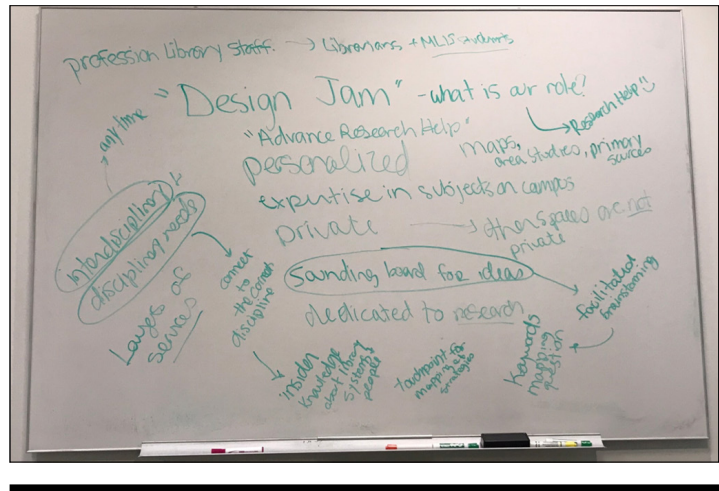 profession Library Staff. → Librarians + MLIS students
"Design Jam" - what is our role?
→ Research Help
any time
"Advance Research Help"
personalized
maps,
area studies, primary
sources
expertise in subjects on campus
private → other spaces are not
private
interdisciplinary
discipline needs
connect
to
the correct
discipline
Layers of
services
Sounding board for ideas
facilitated
brainstorming
dedicated to research
insider
knowledge
about library
systems &
people
touchpoint for
mapping
strategies
Keywords
mapping
question